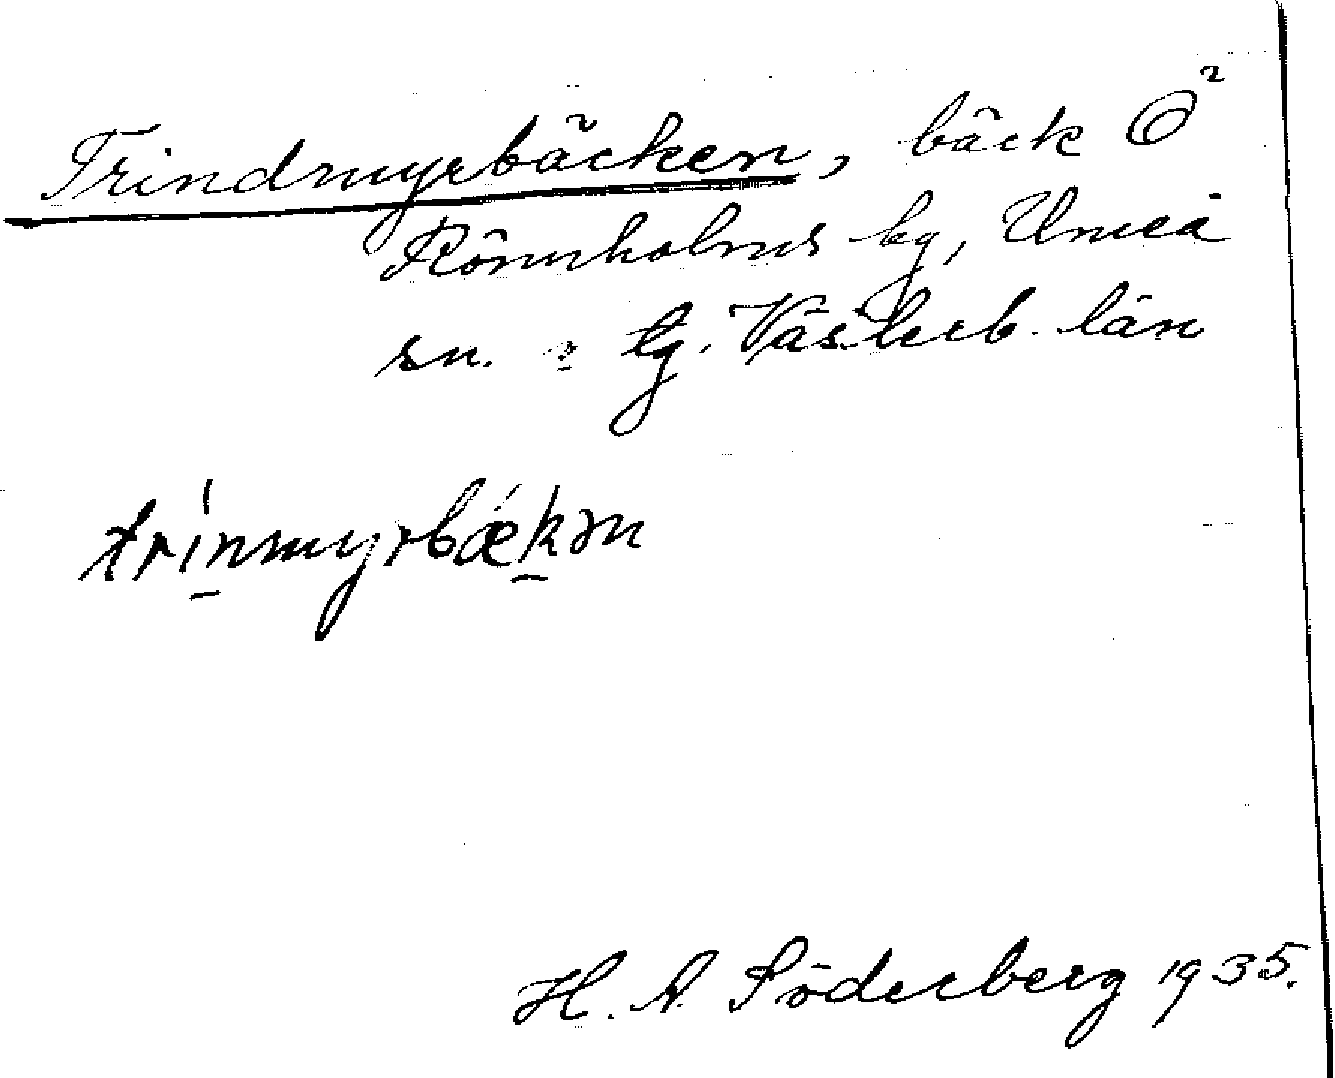 Trindmyrbäcken, bäck Ö²
Rönnholms by, Umeå
sn. o tg. Västerb. län
trinmyrbækən
H. A. Söderberg 1935.